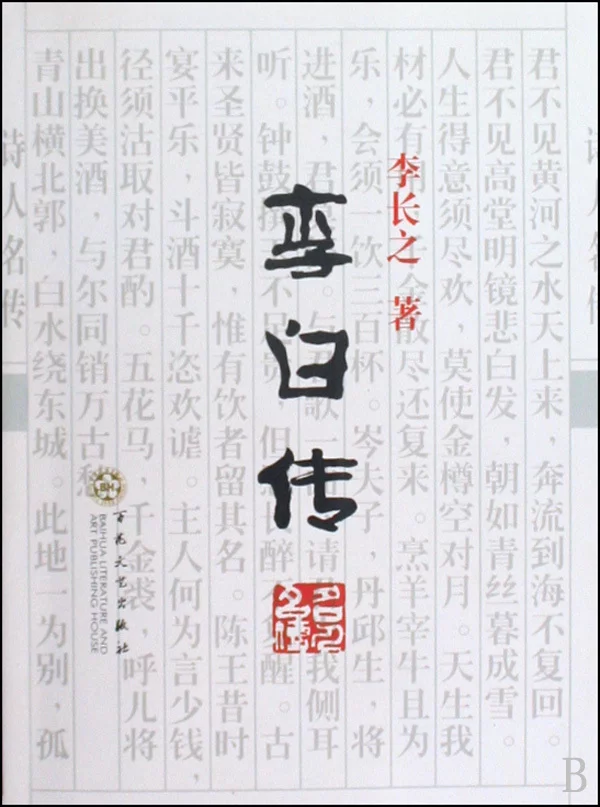 李白传
李长之 著
君不见黄河之水天上来，奔流到海不复回。
君不见高堂明镜悲白发，朝如青丝暮成雪。
人生得意须尽欢，莫使金樽空对月。天生我
材必有用 千金散尽还复来。烹羊宰牛且为
乐，会须一饮三百杯。岑夫子，丹邱生，将
进酒，君 与君歌一 请 我侧耳
听。钟鼓馔 不足贵，但 醉不 醒。古
来圣贤皆寂寞，惟有饮者留其名。陈王昔时
宴平乐，斗酒十千恣欢谑。主人何为言少钱，
径须沽取对君酌。五花马，千金裘，呼儿将
出换美酒，与尔同销万古愁
青山横北郭，白水绕东城。此地一为别，孤
诗人名传
百花文艺出版社
BAIHUA LITERATURE AND
ART PUBLISHING HOUSE
B